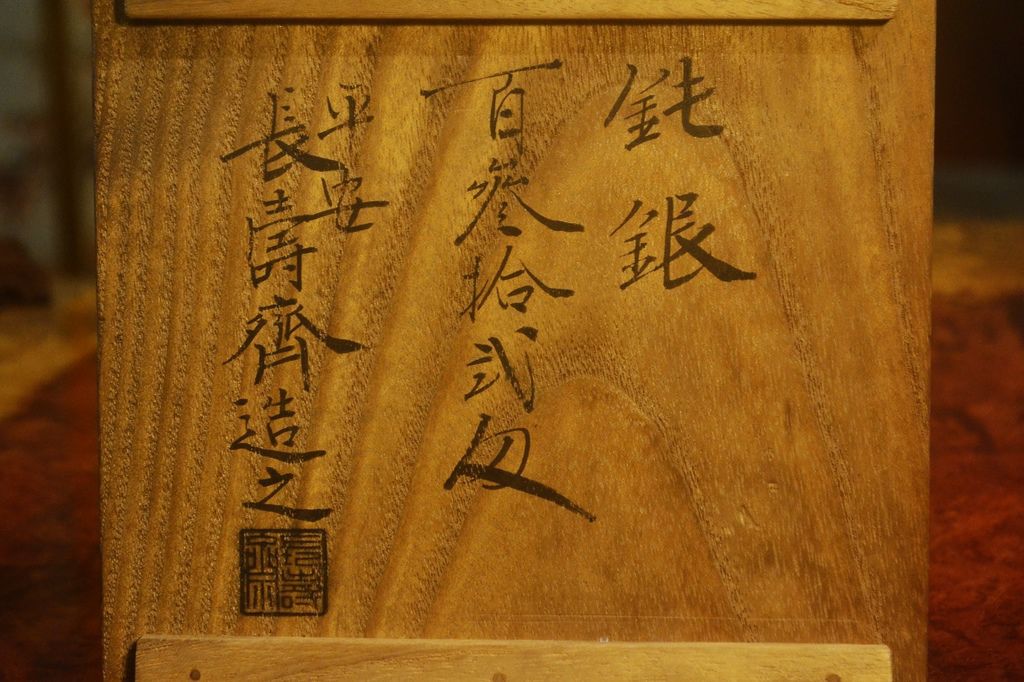 鈍銀
百參拾弐匁
平安
長壽齊造之